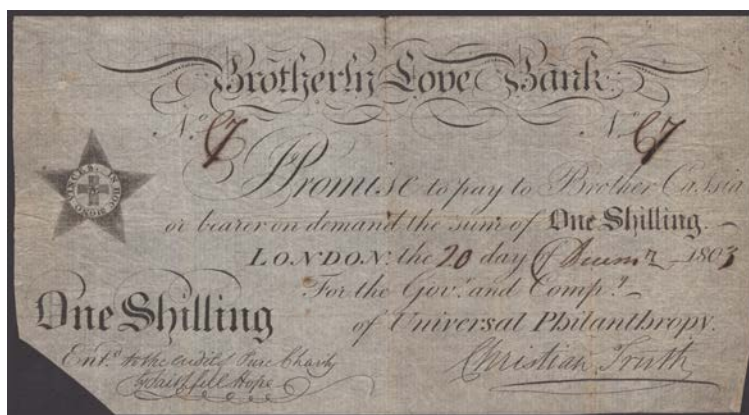 Brotherly Love Bank
No. 67 No. 67
I Promise to pay to Brother Cassia
or bearer on demand the sum of One Shilling.
IN HOC SIGNO VINCES
LONDON, the 20 day of Decemr 1803
For the Govr. and Compy.
One Shilling of Universal Philanthropy.
Entd. to the credit of Pure Charity
by Faithfull Hope
Christian Truth